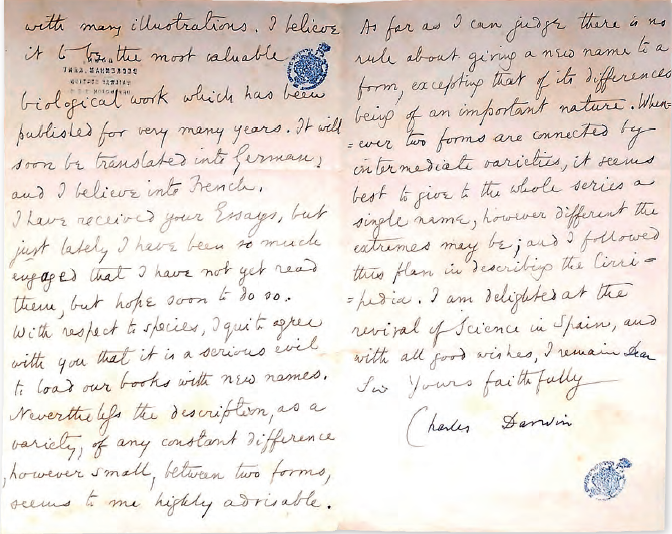 with many illustrations. I believe
it to be the most valuable
biological work which has been
published for very many years. It will
soon be translated into German,
and I believe into French.
I have received your Essays, but
just lately I have been so much
engaged that I have not yet read
them, but hope soon to do so.
With respect to species, I quite agree
with you that it is a serious evil
to load our books with new names.
Nevertheless the description, as a
variety, of any constant difference
, however small, between two forms,
seems to me highly advisable.
As far as I can judge there is no
rule about giving a new name to a
form, excepting that of its differences
being of an important nature. When=
=ever two forms are connected by
intermediate varieties, it seems
best to give to the whole series a
single name, however different the
extremes may be; and I followed
this plan in describing the Cirri=
=pedia. I am delighted at the
revival of Science in Spain, and
with all good wishes, I remain Dear
Sir Yours faithfully
Charles Darwin